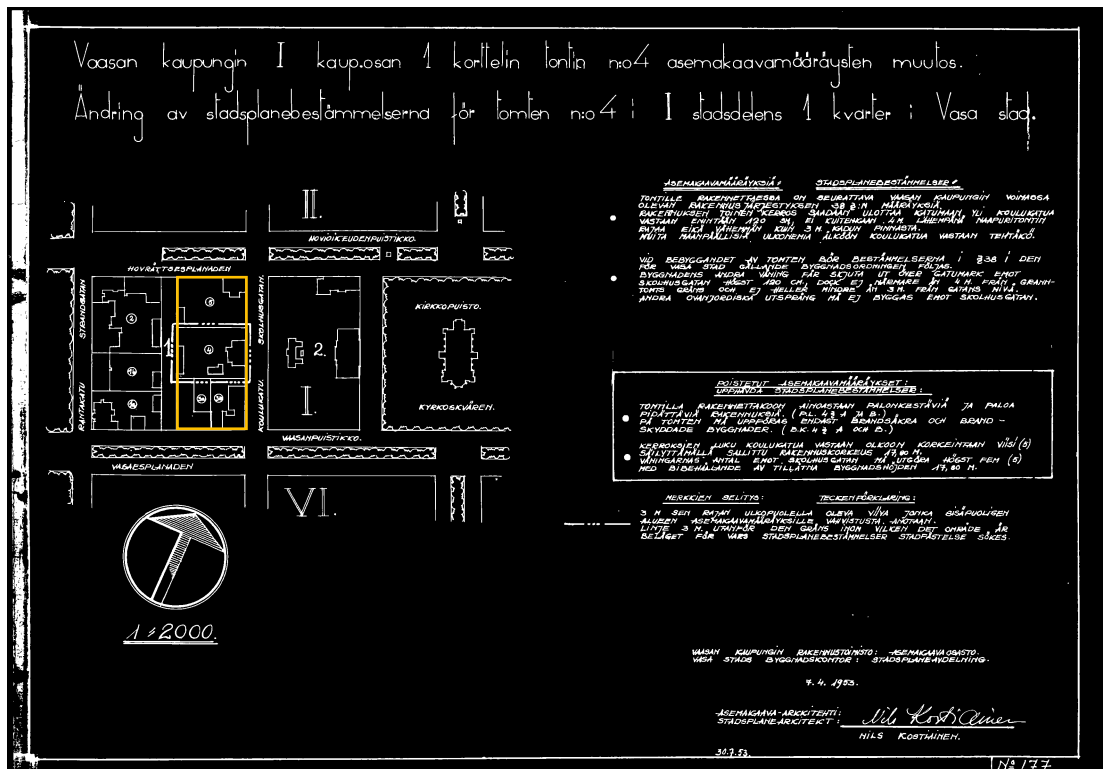 Vaasan kaupungin I kaup.osan 1 korttelin tontin n:o 4 asemakaavamääräysten muutos.
Ändring av stadsplanebestämmelserna för tomten n:o 4 i I stadsdelens 1 kvarter i Vasa stad.
II.
HOVIOIKEUDENPUISTIKKO.
HOVRÄTTSESPLANADEN
STRANDGATAN
RANTAKATU
SKOLHUSGATAN.
KOULUKATU.
2
5
4
1
2.
I.
KIRKKOPUISTO.
KYRKOSKVÄREN.
VAASANPUISTIKKO.
VASAESPLANADEN
VI.
1:2000.
ASEMAKAAVAMÄÄRÄYKSIÄ: STADSPLANEBESTÄMMELSER:
TONTILLE RAKENNETTAESSA ON SEURATTAVA VAASAN KAUPUNGIN VOIMASSA
OLEVAN RAKENNUSJÄRJESTYKSEN 38 §:N MÄÄRÄYKSIÄ.
RAKENNUKSEN TOINEN KERROS SAADAAN ULOTTAA KATUMAAN YLI KOULUKATUA
VASTAAN ENINTÄÄN 120 SM, EI KUITENKAAN 4 M. LÄHEMPÄNÄ NAAPURITONTIN
RAJAA EIKÄ VÄHEMMÄN KUIN 3 M. KADUN PINNASTA.
MUITA MAANPÄÄLLISIÄ ULKONEMIA ÄLKÖÖN KOULUKATUA VASTAAN TEHTÄKÖ.
VID BEBYGGANDET AV TOMTEN BÖR BESTÄMMELSERNA I §38 I DEN
FÖR VASA STAD GÄLLANDE BYGGNADSORDNINGEN FÖLJAS.
BYGGNADENS ANDRA VÅNING FÅR SKJUTA UT ÖVER GATUMARK EMOT
SKOLHUSGATAN HÖGST 120 CM, DOCK EJ NÄRMARE ÄN 4 M. FRÅN GRANN-
TOMTS GRÄNS OCH EJ HELLER MINDRE ÄN 3 M. FRÅN GATANS NIVÅ.
ANDRA OVANJORDISKA UTSPRÅNG MÅ EJ BYGGAS EMOT SKOLHUSGATAN.
POISTETUT ASEMAKAAVAMÄÄRÄYKSET:
UPPHÄVDA STADSPLANEBESTÄMMELSER:
TONTILLA RAKENNETTAKOON AINOASTAAN PALONKESTÄVIÄ JA PALOA
PIDÄTTÄVIÄ RAKENNUKSIA. (P.L. 4 § A JA B.)
PÅ TOMTEN MÅ UPPFÖRAS ENDAST BRANDSÄKRA OCH BRAND-
SKYDDADE BYGGNADER. (B.K. 4 § A OCH B.)
KERROKSIEN LUKU KOULUKATUA VASTAAN OLKOON KORKEINTAAN VIISI (5)
SÄILYTTÄMÄLLÄ SALLITTU RAKENNUSKORKEUS 17,80 M.
VÅNINGARNAS ANTAL EMOT SKOLHUSGATAN MÅ UTGÖRA HÖGST FEM (5)
MED BIBEHÅLLANDE AV TILLÅTNA BYGGNADSHÖJDEN 17,80 M.
MERKKIEN SELITYS: TECKENFÖRKLARING:
3 M SEN RAJAN ULKOPUOLELLA OLEVA VIIVA JONKA SISÄPUOLISEN
ALUEEN ASEMAKAAVAMÄÄRÄYKSILLE VAHVISTUSTA ANOTAAN.
LINJE 3 M. UTANFÖR DEN GRÄNS INOM VILKEN DET OMRÅDE ÄR
BELÄGET FÖR VARS STADSPLANEBESTÄMMELSER STADFÄSTELSE SÖKES.
VAASAN KAUPUNGIN RAKENNUSTOIMISTO: ASEMAKAAVAOSASTO.
VASA STADS BYGGNADSKONTOR: STADSPLANEAVDELNING.
7. 4. 1953.
ASEMAKAAVA-ARKKITEHTI:
STADSPLANEARKITEKT:
Nils Kostiainen
NILS KOSTIAINEN.
30.7.53.
No 177